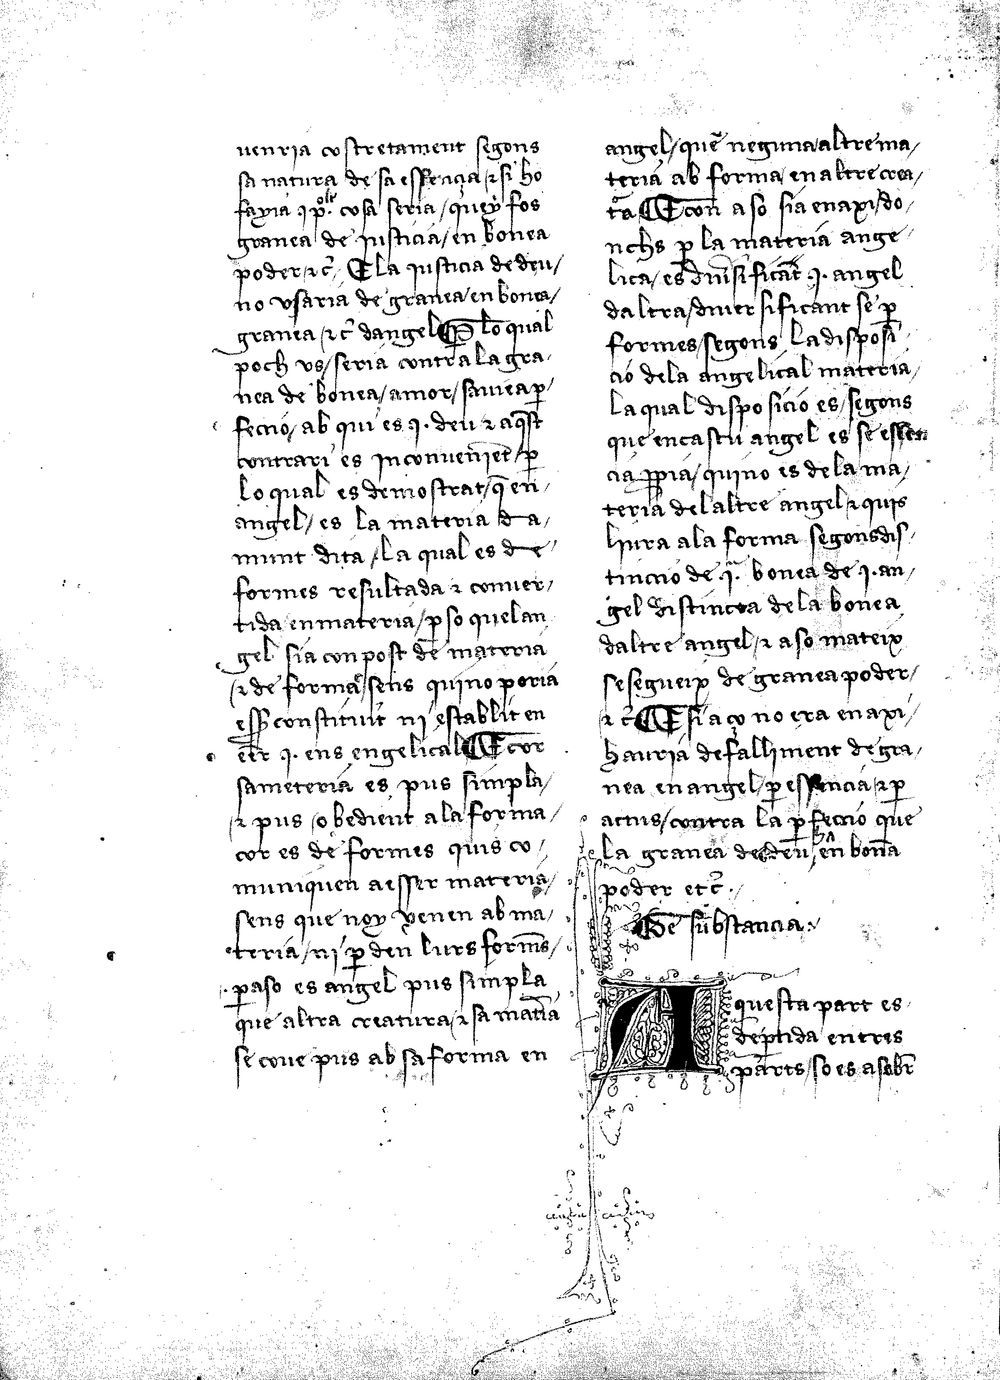 uenria costretament segons
sa natura de sa essencia / ⁊ si ho
fayia .j. pͦ. cosa seria / quey fos
granea de justicia / en bonea
poder / ⁊ cͣ. E la justicia de deu /
no vsaria de granea / en bonea /
granea / ⁊ cͣ dangel ¶ Per lo qual
poch vs / seria contra la gra /
nea de bonea / amor / sauiea per
feccio / ab qui es .j. deu ⁊ aq̄st
contrari es inconueniēt / p̱
lo qual es demostrat / q̄ en /
angel / es la materia da /
munt dita / la qual es de /
formes resultada ⁊ conuer /
tida en materia / p̱ so quelan
gel sia conpost de materia
/ ⁊ de forma / sens quino poria
esser constituit ni establit en
eēr .j. ens engelical ¶ E cor
sa meteria es pus simpla /
/ ⁊ pus obedient a la forma /
cor es de formes quis co /
muniquen a esser materia /
sens que noy venen ab ma /
teria / ni p̱ den lurs formes /
p̱ aso es angel pus simpla
que altra creatura / ⁊ sa mat̄ia
se coue pus ab sa forma en
angel / quē neguna altre ma /
teria ab forma en altre crea /
tͣa ¶ E con aso sia enaxi / do /
nchs p̱ la materia ange /
lica / es diuersificāt .j. angel
daltra / diuersificant se p̱
formes / segons la disposi /
cio dela angelical materia /
la qual disposicio es / segons
que en castu angel es se essen
cia p̱pia / quino es de la ma /
teria del altre angel ⁊ quis
liura a la forma segons dis /
tinccio de .jͣ. bonea de .j. an /
gel distincta de la bonea
daltre angel / ⁊ aso mateix
se segueix de granea poder /
⁊ cͣ ¶ E si aço no era enaxi /
hauria defalliment de gra /
nea en angel / p̱ essencia / ⁊ p̱
actus / contra la p̱feccio que
la granea de deu / en bōna
poder etcͣ .
De substancia .
Aquesta part es
dep̱tida en tres
p̱arts / so es a sob̄r